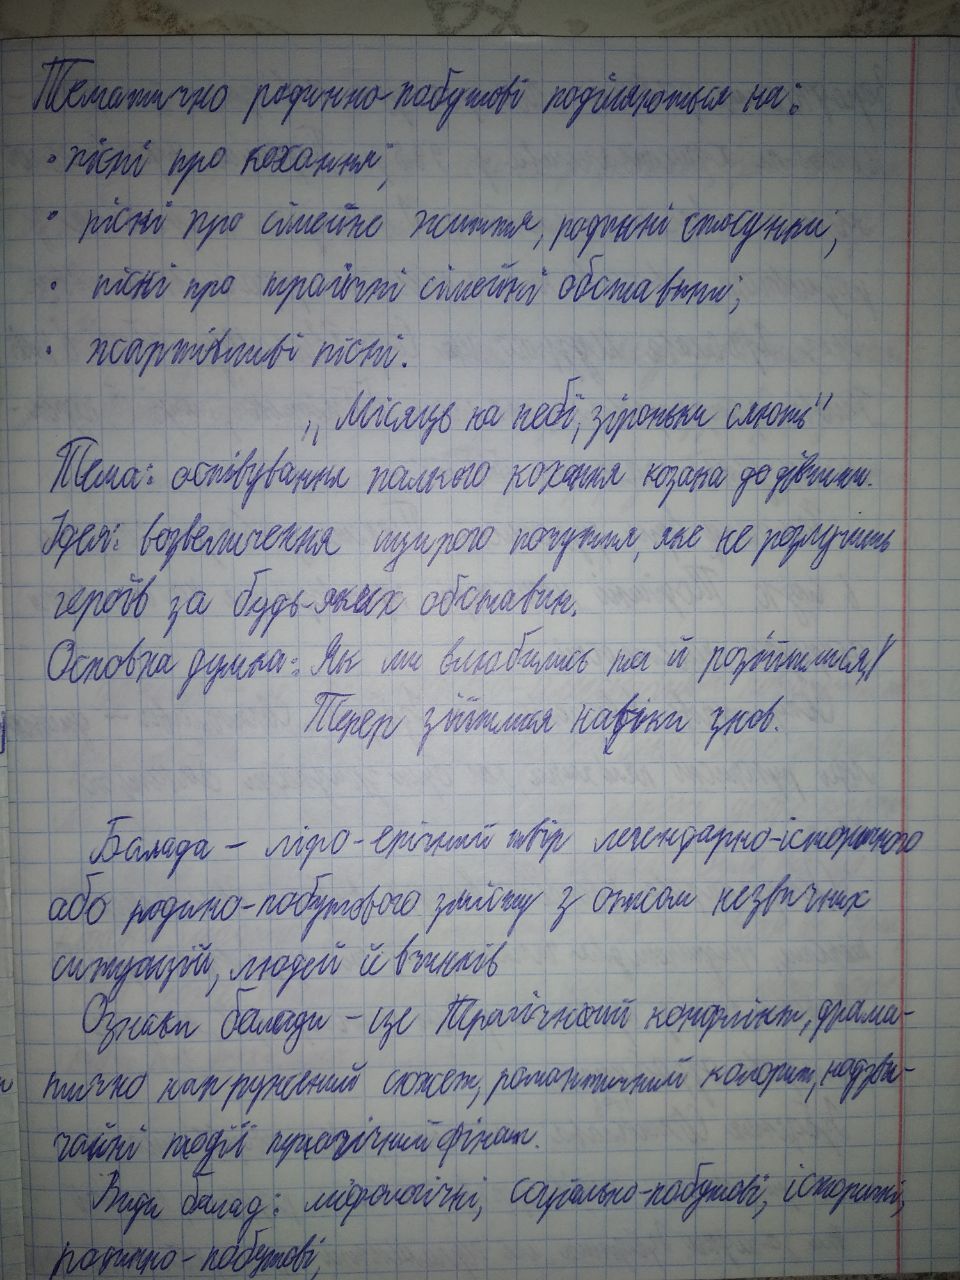 Тематично родинно-побутові поділяються на:
• пісні про кохання;
• пісні про сімейне життя, родинні стосунки;
• пісні про трагічні сімейні обставини;
• жартівливі пісні.
„Місяць на небі, зіроньки сяють"
Тема: оспівування палкого кохання козака до дівчини.
Ідея: возвеличення щирого почуття, яке не розлучить
героїв за будь-яких обставин.
Основна думка: Як ми влюбились та й розійшлися,/
Тепер зійшлися навіки знов.
Балада – ліро-епічний твір легендарно-історичного
або родино-побутового змісту з описом незвичних
ситуацій, людей й вчинків
Ознаки балади – це трагічний конфлікт, драма-
тично напружений сюжет, романтичний колорит, надзви-
чайні події трагічний фінал.
Види балад: міфологічні, соціально-побутові, історичні,
родинно-побутові,